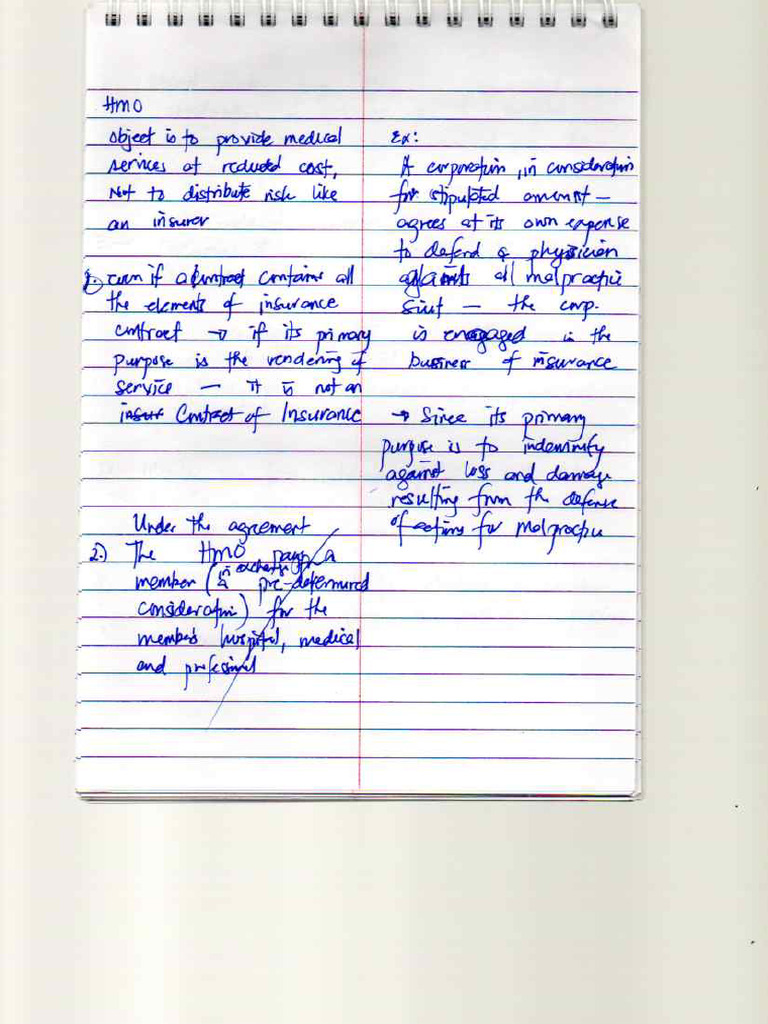 HMO
object is to provide medical
services at reduced cost,
Not to distribute risk like
an insurer
1. even if a contract contains all
the elements of insurance
contract → if its primary
purpose is the rendering of
service — it is not an
insur Contract of Insurance
Under the agreement
2.) The HMO pays a
member (in exchange for
a pre-determined
consideration) for the
member's hospital, medical
and professional
Ex:
A corporation, in consideration
for stipulated amount —
agrees at its own expense
to defend a physician
against all malpractice
suit — the corp.
is engaged in the
business of insurance
→ Since its primary
purpose is to indemnify
against loss and damage
resulting from the defense
of actions for malpractice